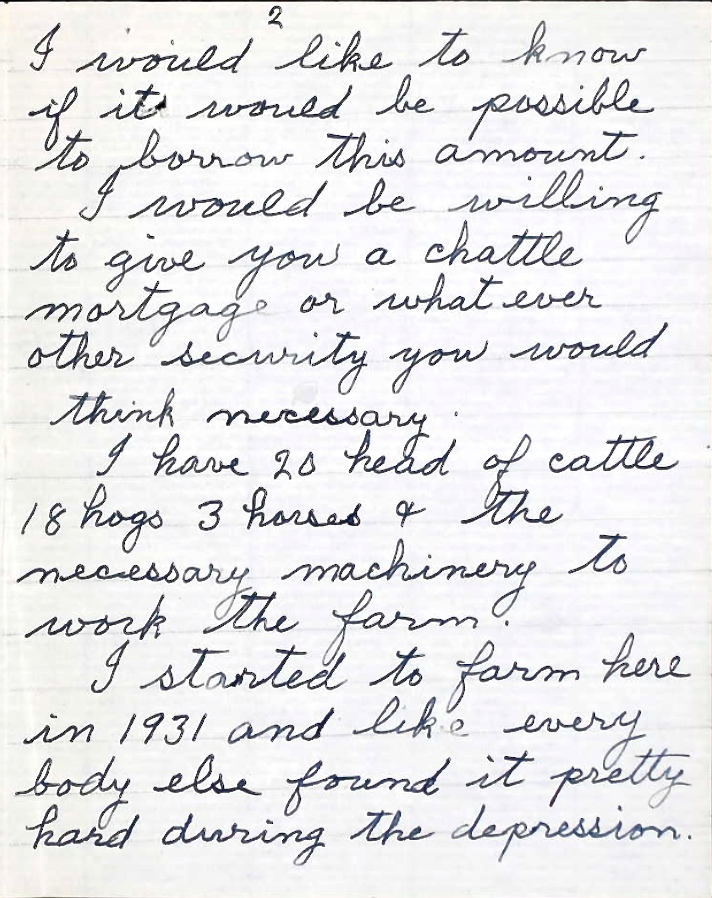 2
I would like to know
if it would be possible
to borrow this amount.
I would be willing
to give you a chattle
mortgage or what ever
other security you would
think necessary.
I have 20 head of cattle
18 hogs 3 horses & the
necessary machinery to
work the farm.
I started to farm here
in 1931 and like every
body else found it pretty
hard during the depression.